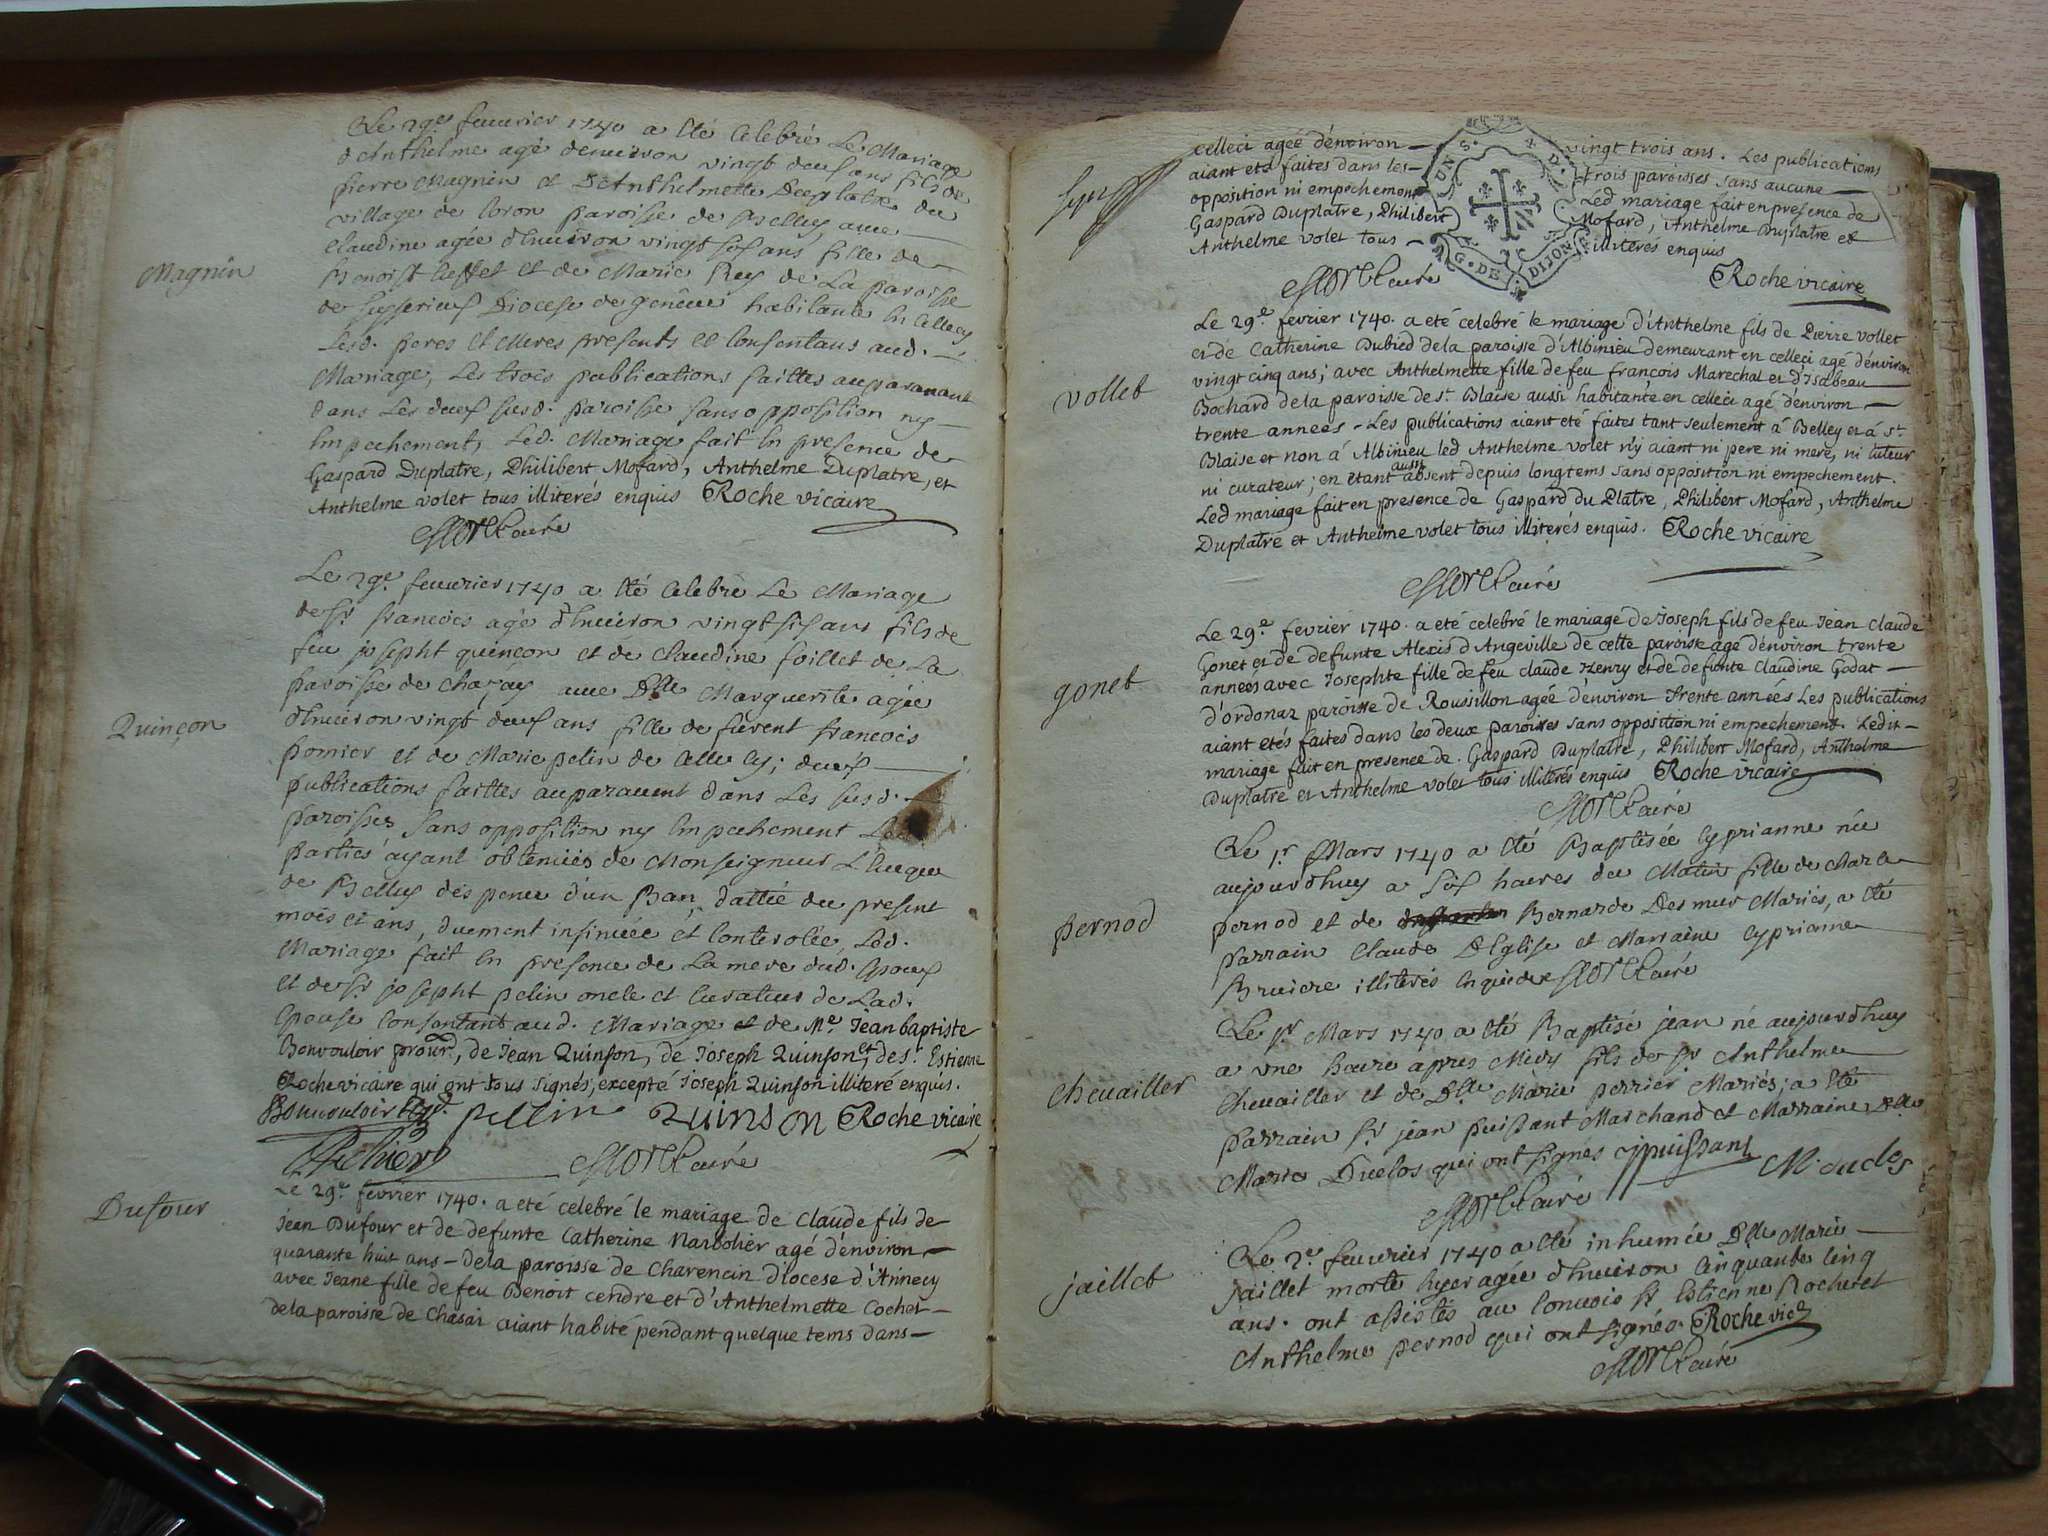 Magnin
Le 29e feuurier 1740 a eté Celebré Le Mariage
d'Anthelme agé denuiron vingt deux ans fils de
pierre Magnin et D'Anthelmette Deeplatre du
village de Coron paroisse de Belley auec
Claudine agée d'enuiron vingt six ans fille de
Benoist et de Marie Rey de La paroisse
de Diocese de geneue habitante en Celle cy
Lesd. peres et Meres presents et Consentans aud.
Mariage, Les trois publications faittes auparauant
dans Les deux susd. paroisse sans opposition ny
Empechement, Led. Mariage fait En presence de
Gaspard Duplatre, Philibert Mofard, Anthelme Duplatre, et
Anthelme volet tous illiterés enquis Roche vicaire
curé
Quinçon
Le 29e feuurier 1740 a eté Celebré Le Mariage
de Sr francois agé d'enuiron vingt six ans fils de
feu josepht quinçon et de Claudine foillet de La
paroisse de Chazay auec Dlle Marguerite agée
d'enuiron vingt deux ans fille de fieu francois
pomier et de Marie pelin de Celle cy; deux
publications faittes auparauent dans Les susd.
paroisses sans opposition ny Empechement Les
parties ayant obtenües de Monseigneur L'Euêque
de Belley dispence d'un Ban, dattée du present
mois et ans, duement insinuée et Controlée, Led.
Mariage fait En presence de La mere dud. Epoux
et de Sr josepht pelin oncle et Curateur de Lad.
Epouse Consentant aud. Mariage et de Me. Jean baptiste
Bonvouloir procur, de Jean Quinson, de Joseph Quinson, et de Sr. Estienne
Roche vicaire qui ont tous signés, excepté Joseph Quinson illiteré enquis.
Bonuouloir pellin Quinson Roche vicaire
curé
Dufour
Le 29.e fevrier 1740. a eté celebré le mariage de Claude fils de
Jean Dufour et de defunte Catherine Marbolier agé d'énviron
quarante huit ans – de la paroisse de Charencin Diocese d'Annecy
avec Jeane fille de feu Benoit cendre et d'Anthelmette Cochet
de la paroisse de Chasai aiant habité pendant quelque tems dans
celleci agée d'énviron vingt trois ans. Les publications
aiant eté faites dans les trois paroisses sans aucune
opposition ni empechement Led mariage fait en presence de
Gaspard Duplatre, Philibert Mofard, Anthelme Duplatre et
Anthelme volet tous illiterés enquis
G. DE DIJON
curé Roche vicaire
vollet
Le 29.e fevrier 1740. a eté celebré le mariage d'Anthelme fils de Pierre vollet
et de Catherine Dubied de la paroisse d'Albinieu demeurant en celleci agé d'énviron
vingt cinq ans; avec Anthelmette fille de feu françois Marechal et d'Isabeau
Bochard de la paroisse de St. Blaise aussi habitante en celleci agé d'énviron
trente années – Les publications aiant eté faites tant seulement à Belley et à St.
Blaise et non à Albinieu led Anthelme volet n'y aiant ni pere ni mere, ni tuteur
ni curateur; en etant aussi absent depuis longtems sans opposition ni empechement.
Led mariage fait en presence de Gaspard du Platre, Philibert Mofard, Anthelme
Duplatre et Anthelme volet tous illiterés enquis. Roche vicaire
curé
gonet
Le 29.e fevrier 1740. a eté celebré le mariage de Joseph fils de feu Jean Claude
Gonet et de defunte Alexis d'Angeville de cette paroisse agé d'énviron trente
années avec Josephte fille de feu claude Henry et de defunte Claudine Godat
d'ordonaz paroisse de Roussillon agée d'énviron trente années Les publications
aiant etés faites dans les deux paroisses sans opposition ni empechement. Ledit
mariage fait en presence de. Gaspard Duplatre, Philibert Mofard, Anthelme
Duplatre et Anthelme volet tous illiterés enquis Roche vicaire
curé
pernod
Le 1r Mars 1740 a eté Baptisée Cyprianne née
aujourdhuy a six heures du Matin fille de Marc
pernod et de Bernarde Desmur Mariés, a eté
parrain Claude DEglise et Marraine Cyprianne
Bruiere illiterés Enquis curé
Cheuailler
Le 1r Mars 1740 a eté Baptisé jean né aujourdhuy
a une heure apres Midy fils de Sr Anthelme
Cheuailler et de Dlle Marie perrier Mariés; a eté
parrain Sr jean puissant Marchand et Marraine Dlle
Marie Duclos qui ont signés jpuissant M. duclos
curé
jaillet
Le 2e feuurier 1740 a eté inhumée Dlle Marie
jaillet morte hyer agée d'enuiron Cinquante Cinq
ans. ont assistés au Conuois Sr Estienne Roche et
Anthelme pernod qui ont signés. Roche vic
curé